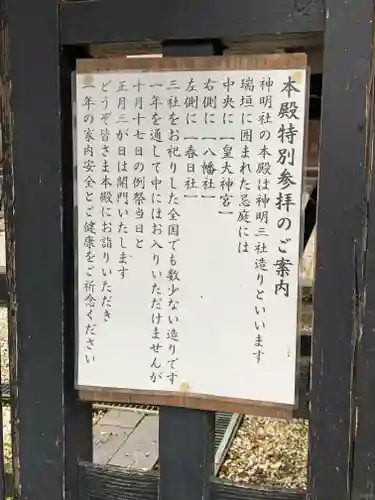 本殿特別参拝のご案内
神明社の本殿は神明三社造りといいます
瑞垣に囲まれた忌庭には
中央に「皇大神宮」
右側に「八幡社」
左側に「春日社」
三社をお祀りした全国でも数少ない造りです
一年を通して中にはお入りいただけませんが
十月十七日の例祭当日と
正月三が日は開門いたします
どうぞ皆さま本殿にお詣りいただき
一年の家内安全とご健康をご祈念ください